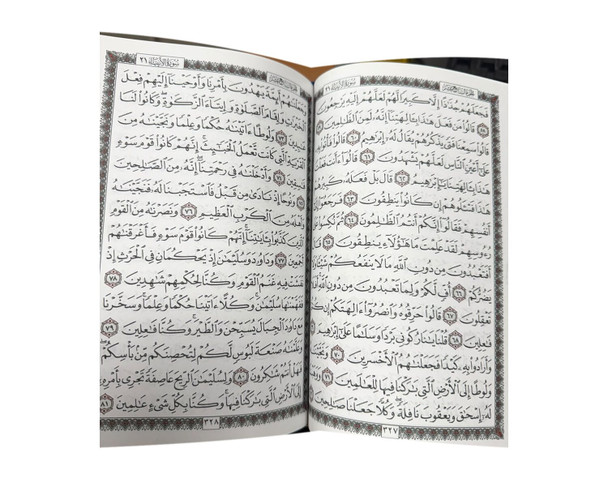 سورة الأنبياء ٢١
فَجَعَلَهُمْ جُذَٰذًا إِلَّا كَبِيرًا لَّهُمْ لَعَلَّهُمْ إِلَيْهِ يَرْجِعُونَ
٥٨ قَالُوا۟ مَن فَعَلَ هَٰذَا بِـَٔالِهَتِنَآ إِنَّهُۥ لَمِنَ ٱلظَّٰلِمِينَ ٥٩
قَالُوا۟ سَمِعْنَا فَتًى يَذْكُرُهُمْ يُقَالُ لَهُۥٓ إِبْرَٰهِيمُ ٦٠ قَالُوا۟ فَأْتُوا۟ بِهِۦ
عَلَىٰٓ أَعْيُنِ ٱلنَّاسِ لَعَلَّهُمْ يَشْهَدُونَ ٦١ قَالُوٓا۟ ءَأَنتَ فَعَلْتَ
هَٰذَا بِـَٔالِهَتِنَا يَٰٓإِبْرَٰهِيمُ ٦٢ قَالَ بَلْ فَعَلَهُۥ كَبِيرُهُمْ
هَٰذَا فَسْـَٔلُوهُمْ إِن كَانُوا۟ يَنطِقُونَ ٦٣ فَرَجَعُوٓا۟ إِلَىٰٓ
أَنفُسِهِمْ فَقَالُوٓا۟ إِنَّكُمْ أَنتُمُ ٱلظَّٰلِمُونَ ٦٤ ثُمَّ نُكِسُوا۟ عَلَىٰ
رُءُوسِهِمْ لَقَدْ عَلِمْتَ مَا هَٰٓؤُلَآءِ يَنطِقُونَ ٦٥ قَالَ
أَفَتَعْبُدُونَ مِن دُونِ ٱللَّهِ مَا لَا يَنفَعُكُمْ شَيْـًٔا وَلَا
يَضُرُّكُمْ ٦٦ أُفٍّ لَّكُمْ وَلِمَا تَعْبُدُونَ مِن دُونِ ٱللَّهِ أَفَلَا
تَعْقِلُونَ ٦٧ قَالُوا۟ حَرِّقُوهُ وَٱنصُرُوٓا۟ ءَالِهَتَكُمْ إِن كُنتُمْ
فَٰعِلِينَ ٦٨ قُلْنَا يَٰنَارُ كُونِى بَرْدًا وَسَلَٰمًا عَلَىٰٓ إِبْرَٰهِيمَ ٦٩
وَأَرَادُوا۟ بِهِۦ كَيْدًا فَجَعَلْنَٰهُمُ ٱلْأَخْسَرِينَ ٧٠ وَنَجَّيْنَٰهُ
وَلُوطًا إِلَى ٱلْأَرْضِ ٱلَّتِى بَٰرَكْنَا فِيهَا لِلْعَٰلَمِينَ ٧١ وَوَهَبْنَا
لَهُۥٓ إِسْحَٰقَ وَيَعْقُوبَ نَافِلَةً وَكُلًّا جَعَلْنَا صَٰلِحِينَ
٣٢٧
سورة الأنبياء ٢١
وَجَعَلْنَٰهُمْ أَئِمَّةً يَهْدُونَ بِأَمْرِنَا وَأَوْحَيْنَآ إِلَيْهِمْ فِعْلَ
ٱلْخَيْرَٰتِ وَإِقَامَ ٱلصَّلَوٰةِ وَإِيتَآءَ ٱلزَّكَوٰةِ وَكَانُوا۟ لَنَا
عَٰبِدِينَ ٧٣ وَلُوطًا ءَاتَيْنَٰهُ حُكْمًا وَعِلْمًا وَنَجَّيْنَٰهُ مِنَ
ٱلْقَرْيَةِ ٱلَّتِى كَانَت تَّعْمَلُ ٱلْخَبَٰٓئِثَ إِنَّهُمْ كَانُوا۟ قَوْمَ سَوْءٍ
فَٰسِقِينَ ٧٤ وَأَدْخَلْنَٰهُ فِى رَحْمَتِنَآ إِنَّهُۥ مِنَ ٱلصَّٰلِحِينَ
٧٥ وَنُوحًا إِذْ نَادَىٰ مِن قَبْلُ فَٱسْتَجَبْنَا لَهُۥ فَنَجَّيْنَٰهُ
وَأَهْلَهُۥ مِنَ ٱلْكَرْبِ ٱلْعَظِيمِ ٧٦ وَنَصَرْنَٰهُ مِنَ ٱلْقَوْمِ
ٱلَّذِينَ كَذَّبُوا۟ بِـَٔايَٰتِنَآ إِنَّهُمْ كَانُوا۟ قَوْمَ سَوْءٍ فَأَغْرَقْنَٰهُمْ
أَجْمَعِينَ ٧٧ وَدَاوُۥدَ وَسُلَيْمَٰنَ إِذْ يَحْكُمَانِ فِى ٱلْحَرْثِ إِذْ
نَفَشَتْ فِيهِ غَنَمُ ٱلْقَوْمِ وَكُنَّا لِحُكْمِهِمْ شَٰهِدِينَ ٧٨
فَفَهَّمْنَٰهَا سُلَيْمَٰنَ وَكُلًّا ءَاتَيْنَا حُكْمًا وَعِلْمًا وَسَخَّرْنَا
مَعَ دَاوُۥدَ ٱلْجِبَالَ يُسَبِّحْنَ وَٱلطَّيْرَ وَكُنَّا فَٰعِلِينَ ٧٩
وَعَلَّمْنَٰهُ صَنْعَةَ لَبُوسٍ لَّكُمْ لِتُحْصِنَكُم مِّنۢ بَأْسِكُمْ
فَهَلْ أَنتُمْ شَٰكِرُونَ ٨٠ وَلِسُلَيْمَٰنَ ٱلرِّيحَ عَاصِفَةً تَجْرِى بِأَمْرِهِۦٓ
إِلَى ٱلْأَرْضِ ٱلَّتِى بَٰرَكْنَا فِيهَا وَكُنَّا بِكُلِّ شَىْءٍ عَٰلِمِينَ ٨١
٣٢٨